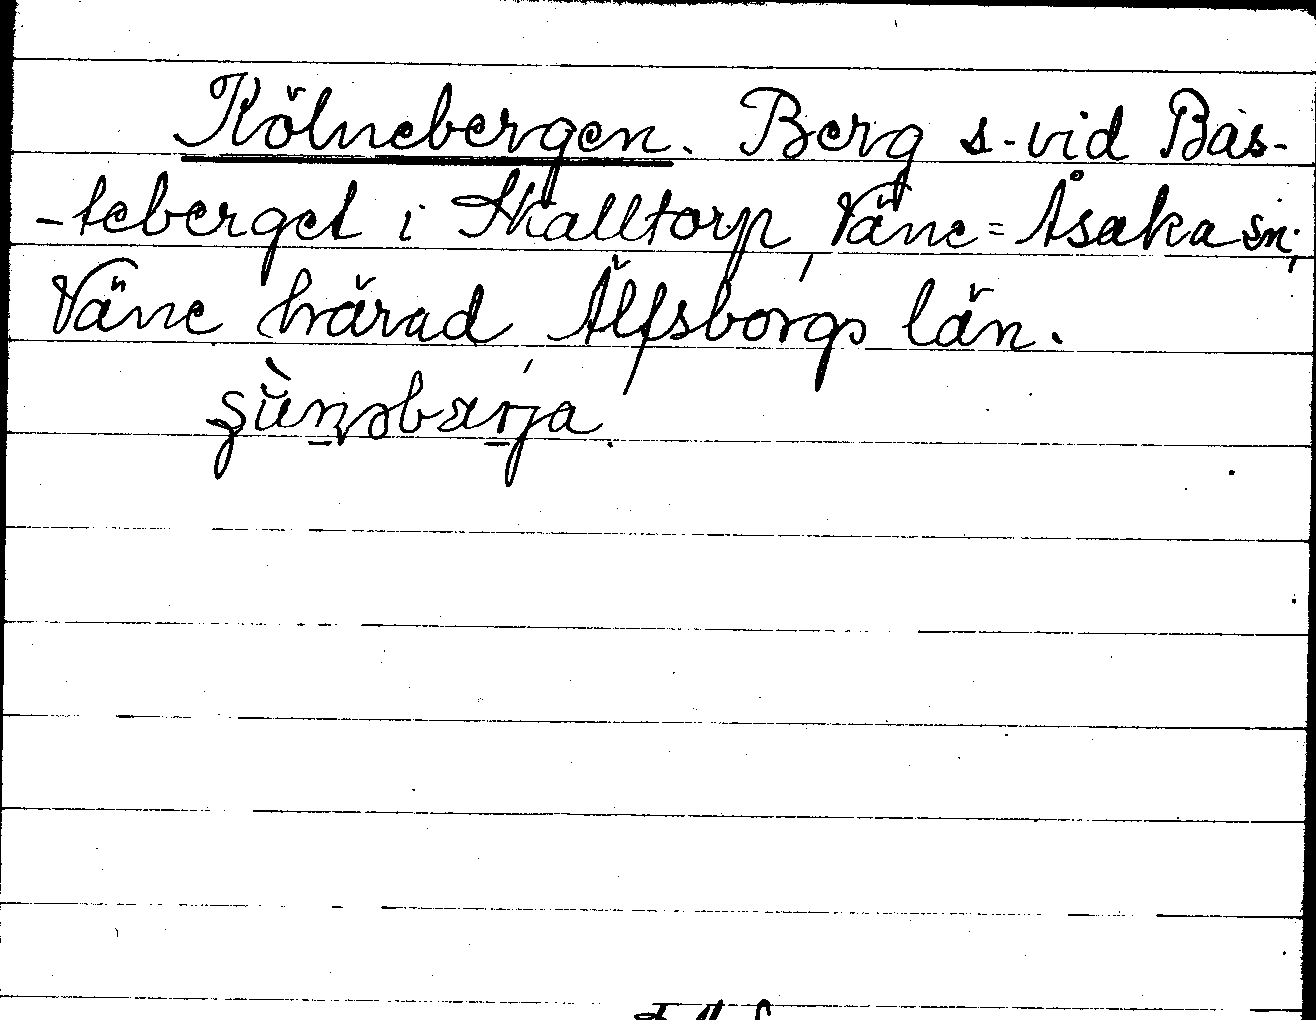 Kölnebergen. Berg s. vid Bas-
-teberget i Skalltorp, Väne=Åsaka sn;
Väne härad, Älfsborgs län.